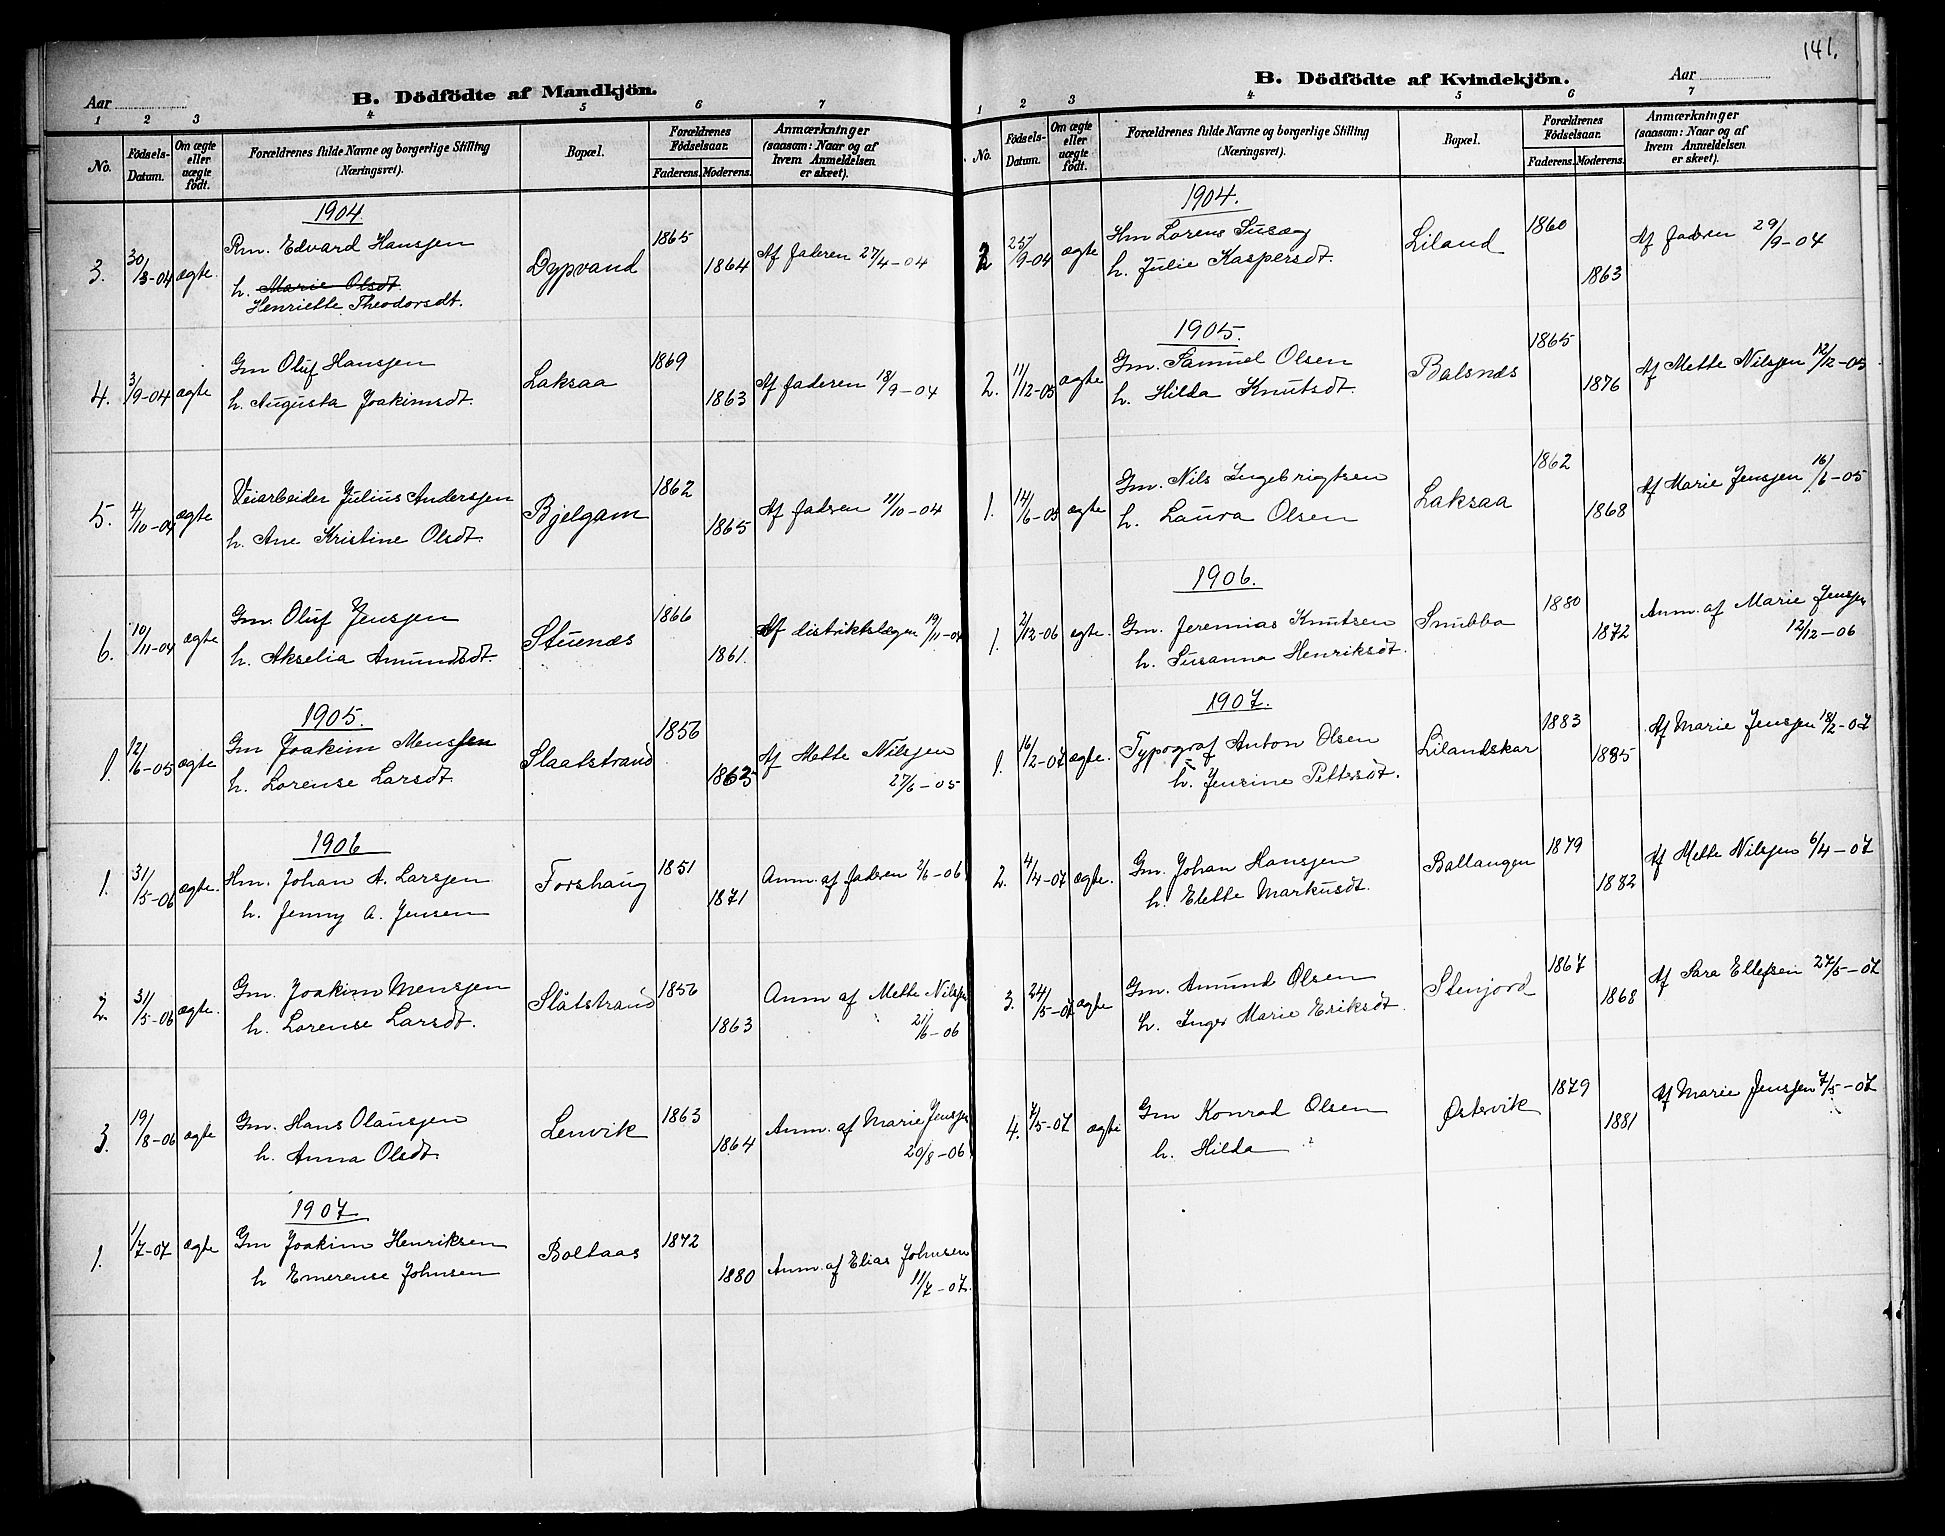 141.
Aar
B. Dödfödte af Mandkjön.
1 2 3 4 5 6 7
No.
Fødsels-Datum.
Om ægte eller uægte født.
Forældrenes fulde Navne og borgerlige Stilling (Næringsvei).
Bopæl.
Forældrenes Fødselsaar.
Faderens. Moderens.
Anmærkninger (saasom: Naar og af hvem Anmeldelsen er skeet).
1904.
3. 30/3-04 ægte Rm. Edvard Hanssen Dypvand 1865 1864 Af faderen 27/4-04
h. Marie Olsdt.
Henriette Theodorsdt.
4. 3/9-04 ægte Gm Oluf Hanssen Laksaa 1869 1863 Af faderen 18/9-04
h. Augusta Joakimsdt.
5. 4/10-04 ægte Veiarbeider Julius Anderssen Bjelgam 1862 1865 Af faderen 11/10-04
h. Ane Kristine Olsdt.
6. 10/11-04 ægte Gm. Oluf Jenssen Stuenæs 1866 1861. Af distriktslægen 19/11-04
h. Akselia Amundsdt.
1905.
1. 12/6-05 ægte Gm Joakim Menssen Slaatstrand 1856 1863 Af Mette Nilssen
h. Lorense Larsdt. 27/6-05
1906
1. 31/5-06 ægte. Hm. Johan A. Larssen Forshaug 1851 1871 Anm. af faderen 2/6-06
h. Jenny A. Jensen
2. 31/5-06 ægte. Gm. Joakim Menssen Slåtstrand 1856 1863 Anm af Mette Nilssen
h. Lorense Larsdt. 21/6-06
3. 19/8-06 ægte Gm. Hans Olaussen Lenvik 1863 1864 Anm. af Marie Jenssen
h. Anna Olsdt. 20/8-06
1907
1. 1/7-07 ægte Gm Joakim Henriksen Boltaas 1872 1880 Anm. af Elias Johnsen
h Emerense Johnsen 11/7-07.
B. Dödfödte af Kvindekjön.
Aar
1 2 3 4 5 6 7
No.
Fødsels-Datum.
Om ægte eller uægte født.
Forældrenes fulde Navne og borgerlige Stilling (Næringsvei).
Bopæl.
Forældrenes Fødselsaar.
Faderens. Moderens.
Anmærkninger (saasom: Naar og af hvem Anmeldelsen er skeet).
1904.
2 25/9-04 ægte Hm Lorens Liland 1860 1863 Af faderen 29/9-04
h. Julie Kaspersdt.
1905.
2. 11/12-05 ægte Gm. Samuel Olsen Balsnæs 1865 1876 Af Mette Nilssen 12/12-05
h. Hilda Knutsdt.
1. 14/6-05 ægte Gm. Nils Ingebrigtsen Laksaa 1862 1868 Af Marie Jenssen 16/6-05
h. Laura Olsen
1906.
1. 2/12-06 ægte. Gm. Jeremias Knutsen Snubba 1880 1872 Anm. af Marie Jenssen
h. Susanna Henriksdt. 12/12-06
1907.
1. 16/2-07 ægte. Typograf Anton Olsen Lilandskar 1883 1885 Af Marie Jenssen 18/2-07
h. Jensine Pettersdt.
2. 4/4-07 ægte. Gm. Johan Hanssen Ballangen 1879 1882 Af Mette Nilssen 6/4-07
h. Elette Markusdt.
3. 24/5-07 ægte Gm. Amund Olsen Stenjord 1867 1868 Af Sara Ellefsen 27/5-07
h. Inger Marie Eriksdt.
4. 7/5-07 ægte Gm Konrad Olsen Østervik 1879 1881 Af Marie Jenssen 7/5-07
h. Hilda ?